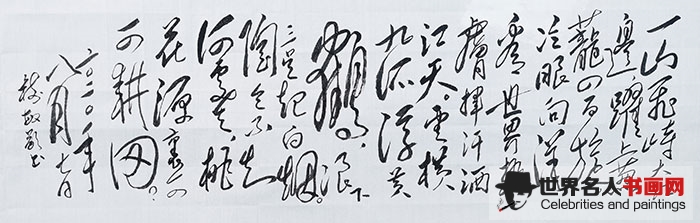 一山飛峙大
邊，躍上葱
蘢四百旋
冷眼向洋
看世界熱
膚揮汗洒
江天。雲横
九派浮黄
鶴，浪下
三吴起白烟。
陶令不知
何處去，桃
花源裏
可耕田？
二〇二〇年
八月七日
世界名人书画网
Celebrities and paintings